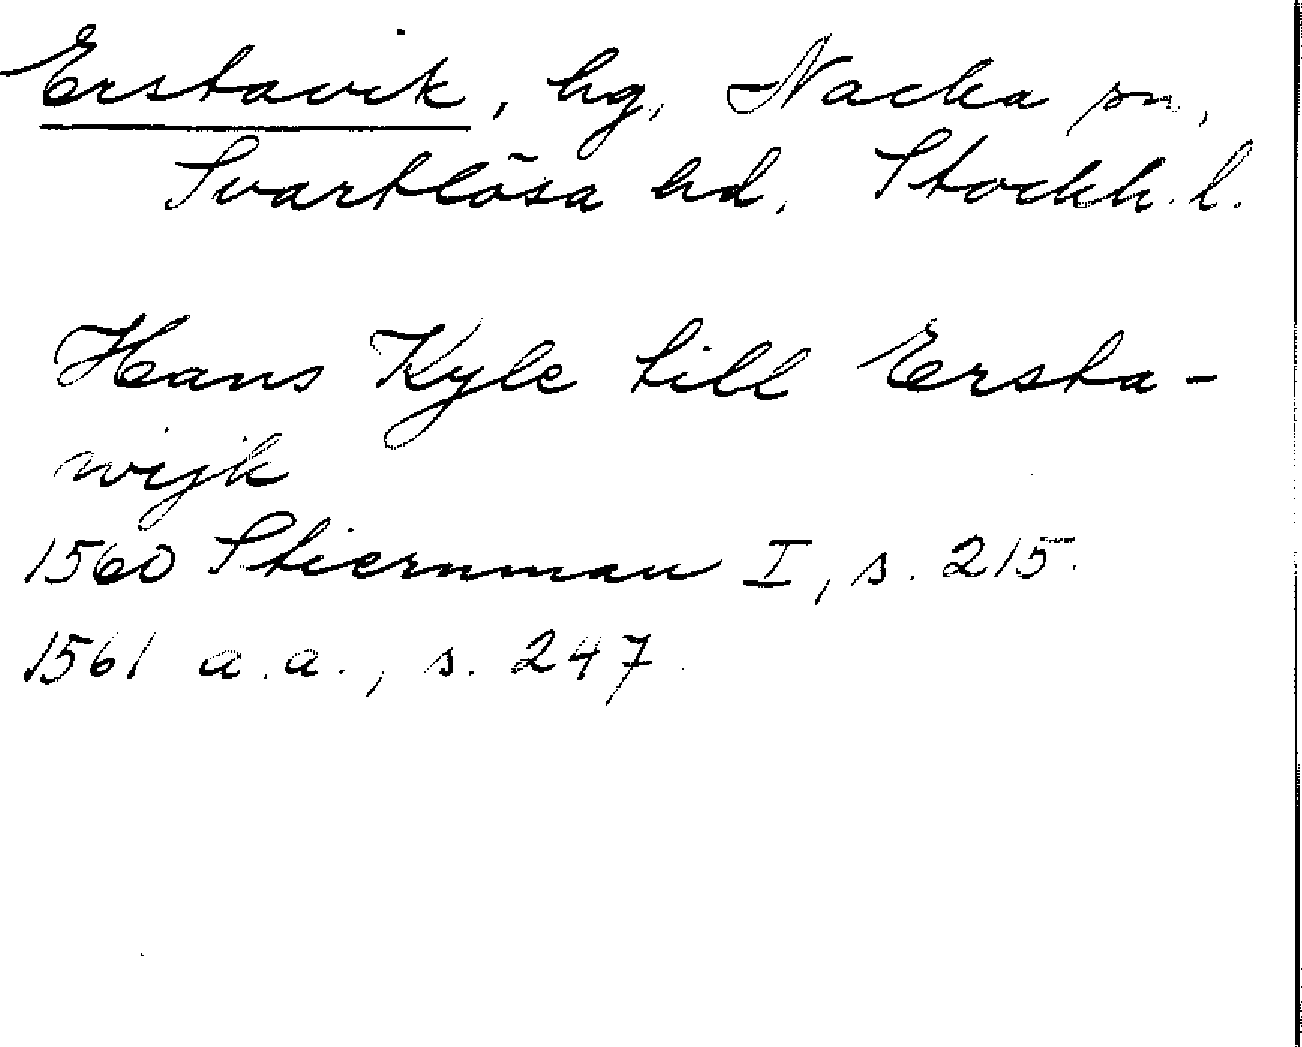 Erstavik, hg, Nacka sn,
Svartlösa hd, Stockh. l.
Hans Kyle till Ersta-
wijk
1560 Stiernman I, s. 215.
1561 a.a., s. 247.